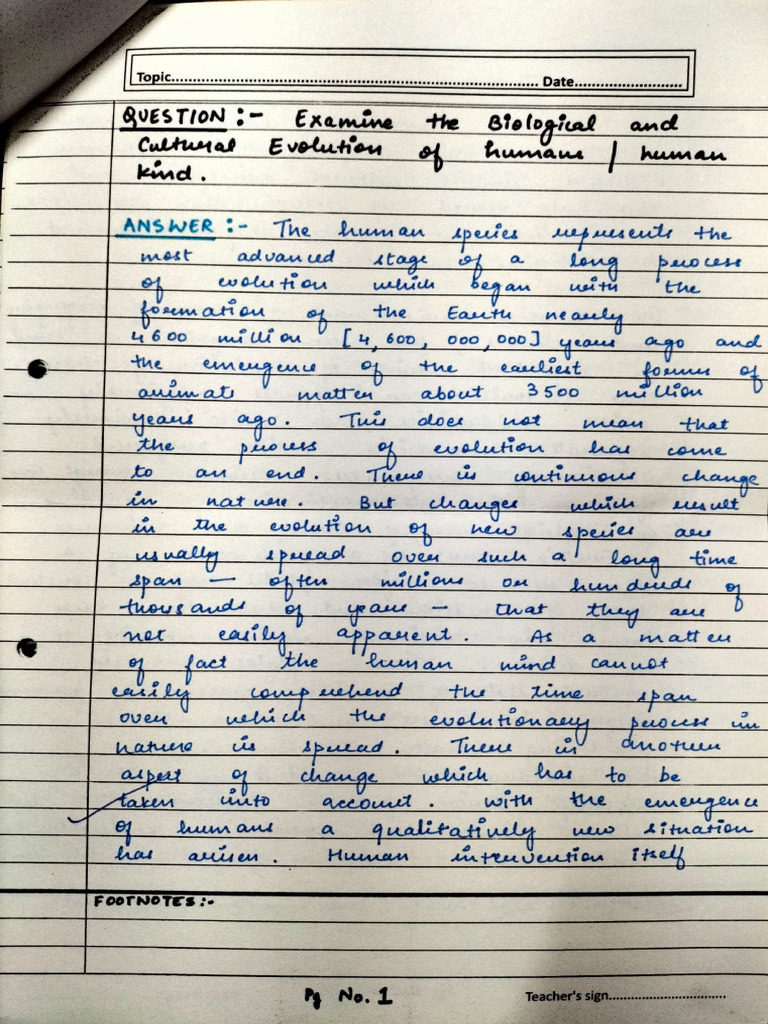 Topic.................... Date....................
QUESTION :- Examine the Biological and
Cultural Evolution of humans / human
kind.
ANSWER :- The human species represents the
most advanced stage of a long process
of evolution which began with the
formation of the Earth nearly
4600 million [4,600,000,000] years ago and
the emergence of the earliest forms of
animate matter about 3500 million
years ago. This does not mean that
the process of evolution has come
to an end. There is continuous change
in nature. But changes which result
in the evolution of new species are
usually spread over such a long time
span — often millions or hundreds of
thousands of years — that they are
not easily apparent. As a matter
of fact the human mind cannot
easily comprehend the time span
over which the evolutionary process in
nature is spread. There is another
aspect of change which has to be
taken into account. With the emergence
of humans a qualitatively new situation
has arisen. Human intervention itself
FOOTNOTES :-
Pg No. 1
Teacher's sign....................